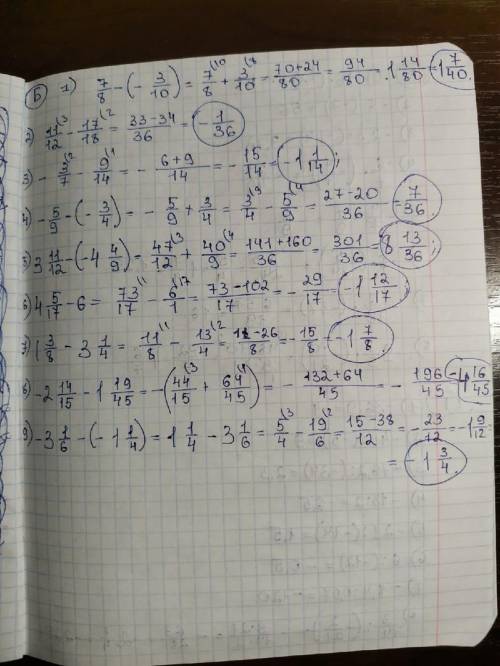 Б 1) 7/8 - (- 3/10) = 7/8 \10 + 3/10 \8 = 70+24/80 = 94/80 = 1 14/80 = 1 7/40.
2) 11/12 \3 - 17/18 \2 = 33-34/36 = - 1/36
3) - 3/7 \2 - 9/14 \1 = - 6+9/14 = - 15/14 = -1 1/14;
4) - 5/9 - (- 3/4) = - 5/9 + 3/4 = 3/4 \9 - 5/9 \4 = 27-20/36 = 7/36.
5) 3 11/12 - (-4 4/9) = 47/12 \3 + 40/9 \4 = 141+160/36 = 301/36 = 8 13/36
6) 4 5/17 - 6 = 73/17 \1 - 6/1 \17 = 73-102/17 = - 29/17 = -1 12/17
7) 1 3/8 - 3 1/4 = 11/8 \1 - 13/4 \2 = 11-26/8 = - 15/8 = -1 7/8.
8) -2 14/15 - 1 19/45 = -(44/15 \3 + 64/45 \1) = - 132+64/45 = - 196/45 = -4 16/45
9) -3 1/6 - (-1 1/4) = 1 1/4 - 3 1/6 = 5/4 \3 - 19/6 \2 = 15-38/12 = - 23/12 = -1 9/12
= -1 3/4.